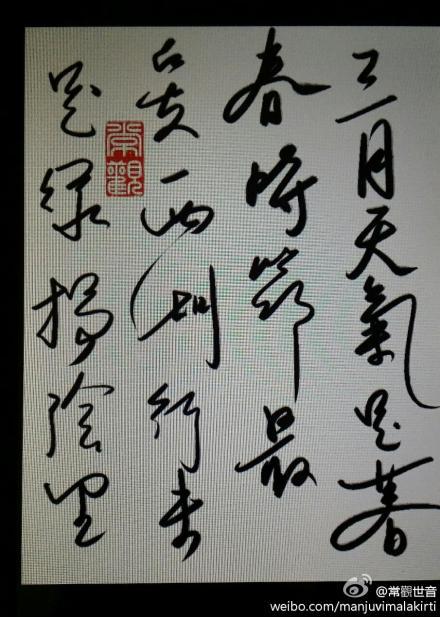 三月天氣是暮
春時節最
西湖行来
是綠楊陰里
常觀
@常觀世音
weibo.com/manjuvimalakirti